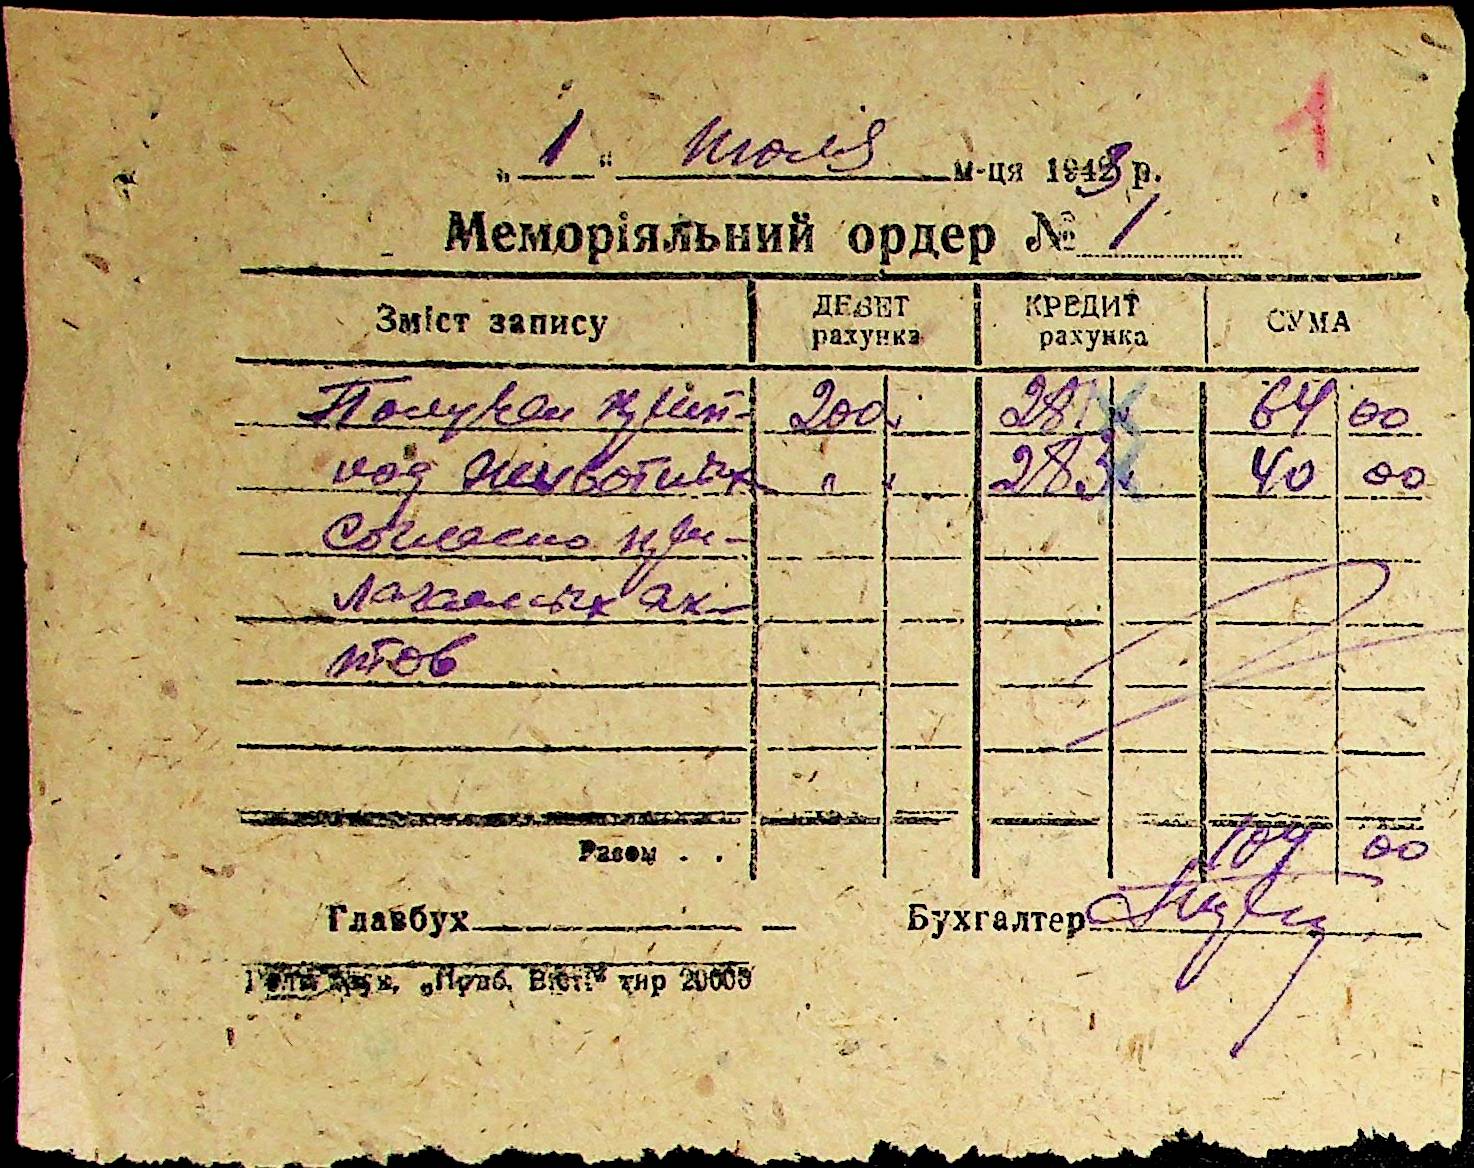 1
„ 1 “ Июля м-ця 1943 р.
Меморіяльний ордер № 1
Зміст запису ДЕБЕТ рахунка КРЕДИТ рахунка СУМА
Получен прип- 200. 281. 64 00
лод животных " " 283. 40 00
согласно при-
лагаемых ак-
тов
Разом . . 104 00
Главбух Бухгалтер
тир 20000